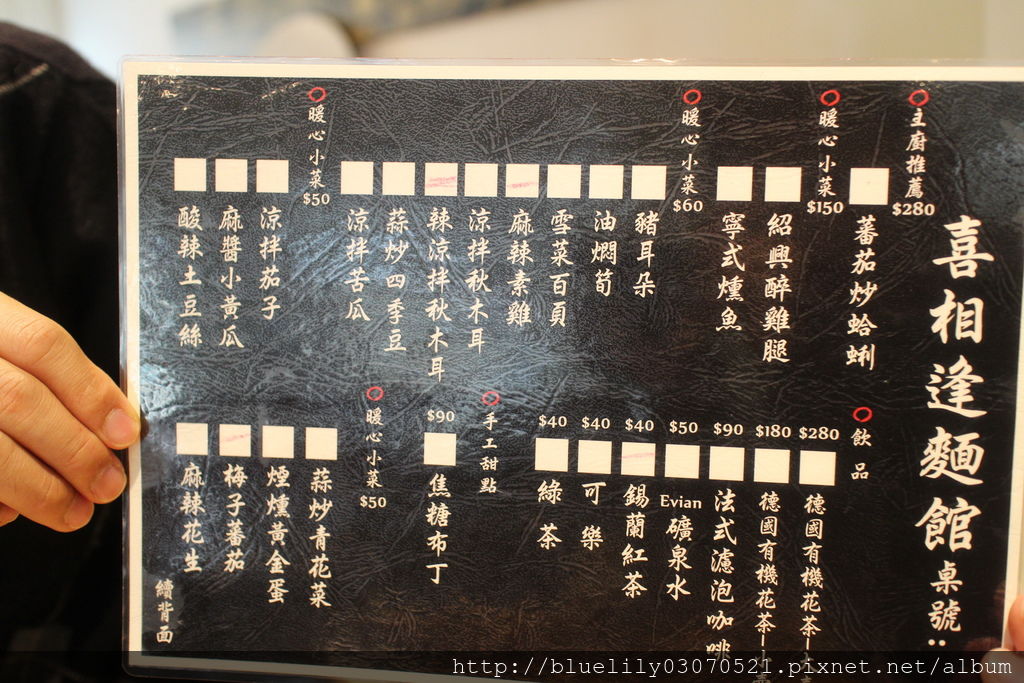 喜相逢麵館 桌號:
主廚推薦 $280
蕃茄炒蛤蜊
暖心小菜 $150
紹興醉雞腿
寧式燻魚
暖心小菜 $60
豬耳朵
油燜筍
雪菜百頁
麻辣素雞
涼拌秋木耳
辣涼拌秋木耳
蒜炒四季豆
涼拌苦瓜
暖心小菜 $50
涼拌茄子
麻醬小黃瓜
酸辣土豆絲
飲品
$280 德國有機花茶—
$180 德國有機花茶—
$90 法式濾泡咖啡
$50 Evian 礦泉水
$40 錫蘭紅茶
$40 可樂
$40 綠茶
手工甜點
$90 焦糖布丁
暖心小菜 $50
蒜炒青花菜
煙燻黃金蛋
梅子蕃茄
麻辣花生
續背面
http://bluelily03070521.pixnet.net/album